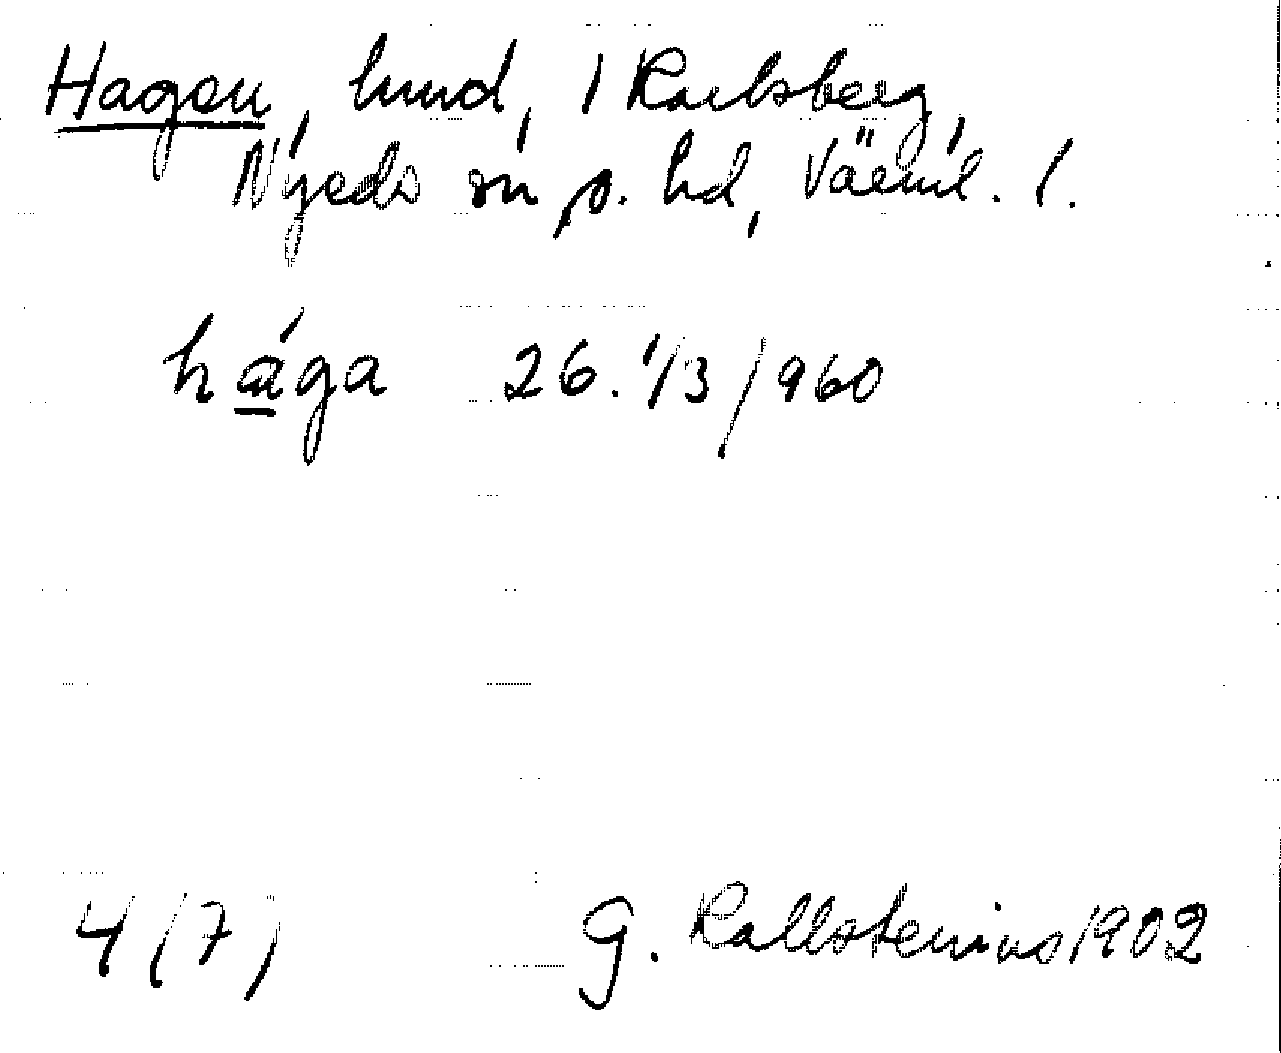 Hagen, hmd, 1 Karlsberg,
Nyeds sn o. hd, Värml. l.
hága 26. 1/3/960
4 (7) G. Kallstenius 1902